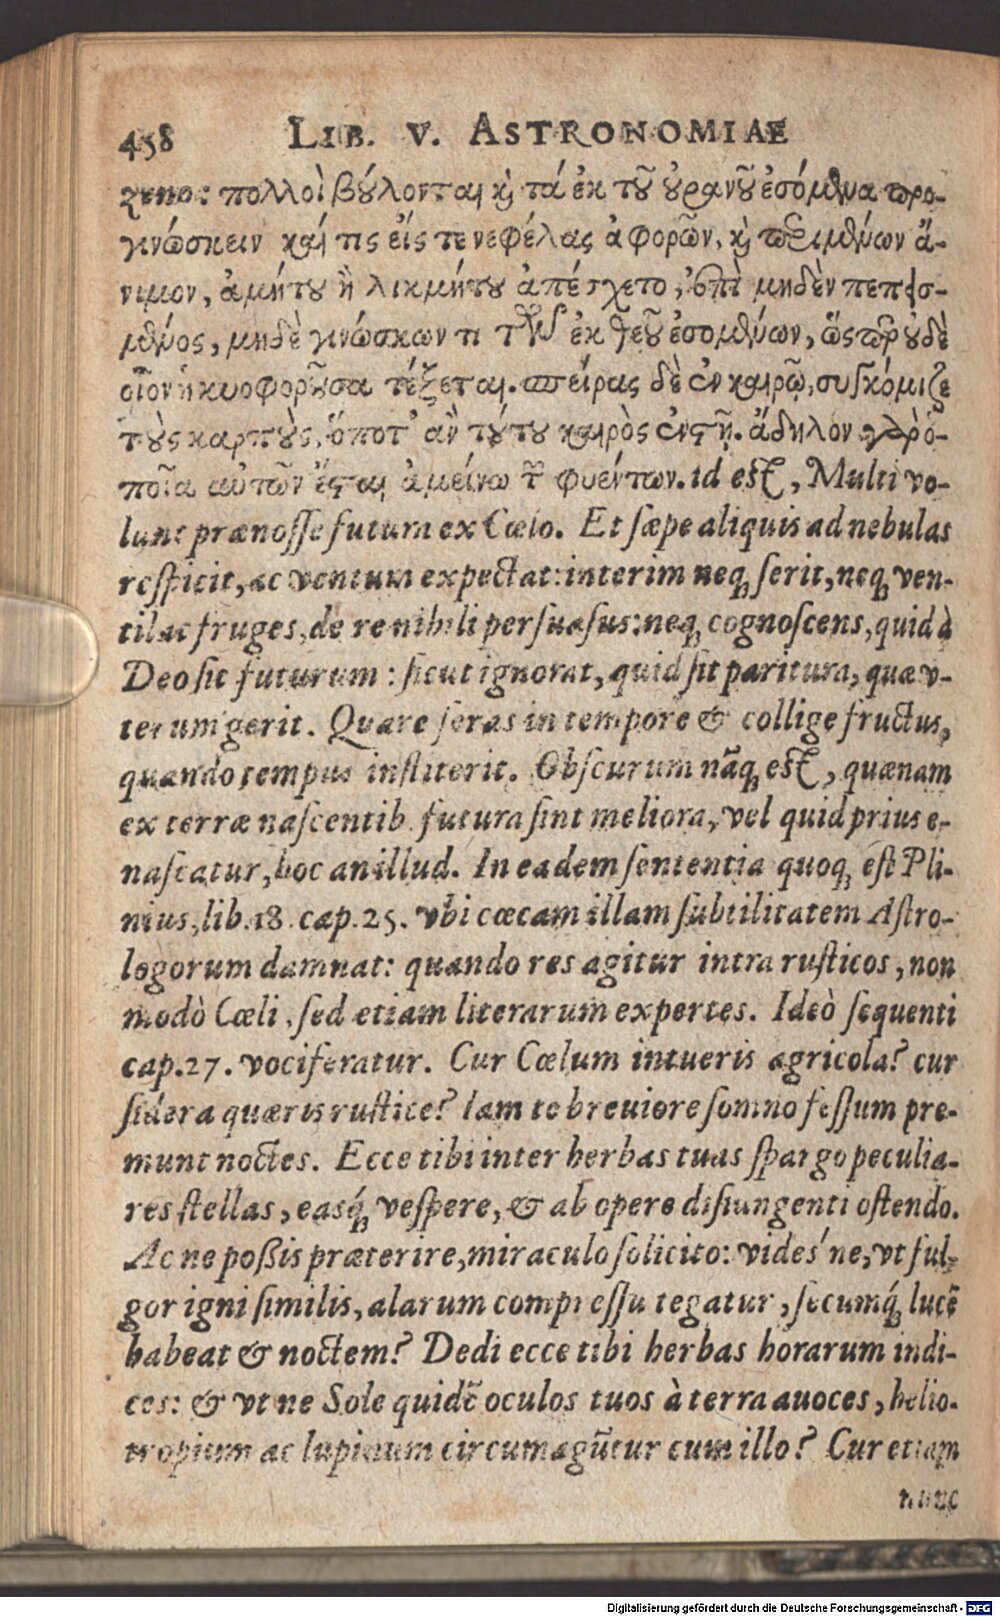 458 LIB. V. ASTRONOMIAE
zeno: πολλοὶ βούλονται καὶ τά ἐκ τοῦ οὐρανοῦ ἐσόμενα προ-
γινώσκειν καί τις εἰς τε νεφέλας ἀφορῶν, καὶ περιμένων ἄ-
νιμον, ἀμήτου ἢ λικμήτου ἀπέσχετο, ἐπὶ μηδὲν πεπεισ-
μένος, μηδὲ γινώσκων τι τῶν ἐκ θεοῦ ἐσομένων, ὥσπερ οὐδὲ
οἷον ἡ κυοφοροῦσα τέξεται. σπείρας δὲ ἐν καιρῷ, συγκόμιζε
τοὺς καρποὺς, ὁπότ' ἂν τούτου καιρὸς ἐνστῇ. ἄδηλον γὰρ ὁ-
ποῖα αὐτῶν ἔσται ἀμείνω τῶν φυέντων. id est, Multi vo-
lunt prænosse futura ex Cœlo. Et sæpe aliquis ad nebulas
respicit, ac ventum expectat: interim neq; serit, neq; ven-
tilat fruges, de re nihili persuasus: neq; cognoscens, quid à
Deo sit futurum: sicut ignorat, quid sit paritura, quæ v-
terum gerit. Quare seras in tempore & collige fructus,
quando tempus institerit. Obscurum nãq; est, quænam
ex terræ nascentib. futura sint meliora, vel quid prius e-
nascatur, hoc an illud. In eadem sententia quoq; est Pli-
nius, lib. 18. cap. 25. vbi cœcam illam subtilitatem Astro-
logorum damnat: quando res agitur intra rusticos, non
modò Cœli, sed etiam literarum expertes. Ideò sequenti
cap. 27. vociferatur. Cur Cœlum intueris agricola? cur
sidera quæris rustice? Iam te breuiore somno fessum pre-
munt noctes. Ecce tibi inter herbas tuas spargo peculia-
res stellas, easq́; vespere, & ab opere disiungenti ostendo.
Ac ne poßis præterire, miraculo solicito: vides'ne, vt ful-
gor igni similis, alarum compressu tegatur, secumq́; lucẽ
habeat & noctem? Dedi ecce tibi herbas horarum indi-
ces: & vt ne Sole quidẽ oculos tuos à terra auoces, helio-
tropium ac lupinum circumagũtur cum illo? Cur etiam
nunc
Digitalisierung gefördert durch die Deutsche Forschungsgemeinschaft - DFG